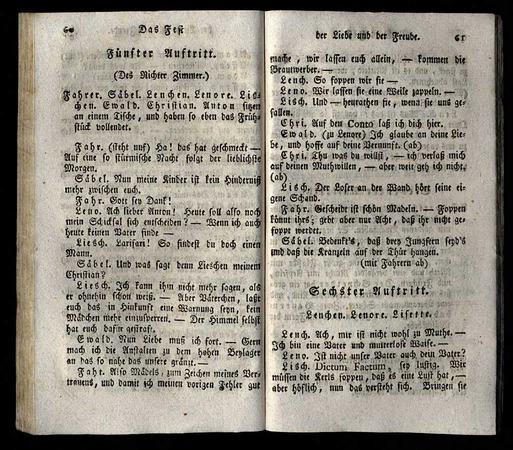 60
Das Fest
Fünfter Auftritt.
(Des Richter Zimmer.)
Fahrer. Säbel. Lenchen. Lenore. Lis=
chen. Ewald. Christian. Anton sitzen
an einem Tische, und haben so eben das Früh=
stück vollendet.
Fahr. (steht auf) Ha! das hat geschmeckt —
Auf eine so stürmische Nacht folgt der lieblichste
Morgen.
Säbel. Nun meine Kinder ist kein Hinderniß
mehr zwischen euch.
Fahr. Gott sey Dank!
Leno. Ach lieber Anton! Heute soll also noch
mein Schicksal sich entscheiden? — Wenn ich auch
heute keinen Vater finde —
Liesch. Larifari! So findest du doch einen
Mann.
Säbel. Und was sagt denn Lieschen meinem
Christian?
Liesch. Ich kann ihm nicht mehr sagen, als
er ohnehin schon weiß. — Aber Väterchen, laßt
euch das in Hinkunft eine Warnung seyn, kein
Mädchen mehr einzusperren. — Der Himmel selbst
hat euch dafür gestraft.
Ewald. Nun Liebe muß ich fort. — Gern
mach ich die Anstalten zu dem hohen Beylager
an das so nahe das unsere gränzt. —
Fahr. Also Mädels, zum Zeichen meines Ver=
trauens, und damit ich meinen vorigen Fehler gut
der Liebe und der Freude.
61
mache, wir lassen euch allein, — kommen die
Brautwerber. —
Lench. So foppen wir sie —
Leno. Wir lassen sie eine Weile zappeln. —
Lisch. Und — heurathen sie, wenn sie uns ge=
fallen.
Chri. Auf den Conto laß ich dich hier.
Ewald. (zu Lenore) Ich glaube an deine Lie=
be, und hoffe auf deine Vernunft. (ab)
Chri. Thu was du willst, — ich verlaß mich
auf deinen Muthwillen, — aber weit geh ich nicht.
(ab)
Lisch. Der Loser an der Wand, hört seine ei=
gene Schand.
Fahr. Gescheidt ist schön Madeln. — Foppen
könnt ihrs; gebt aber nur Acht, daß ihr nicht ge=
foppt werdet.
Säbel. Bedenkt's, daß drey Jungfern seyd's
und daß die Kranzeln auf der Thür hangen.
(mit Fahrern ab)
Sechster Auftritt.
Lenchen. Lenore. Lisette.
Lench. Ach, mir ist nicht wohl zu Muthe. —
Ich bin eine Vater und mutterlose Waise. —
Leno. Ist nicht unser Vater auch dein Vater?
Lisch. Dictum Factum, sey lustig. Wir
müssen die Kerls foppen, daß es eine Lust hat, —
aber höflich, nun das versteht sich. Bringen sie